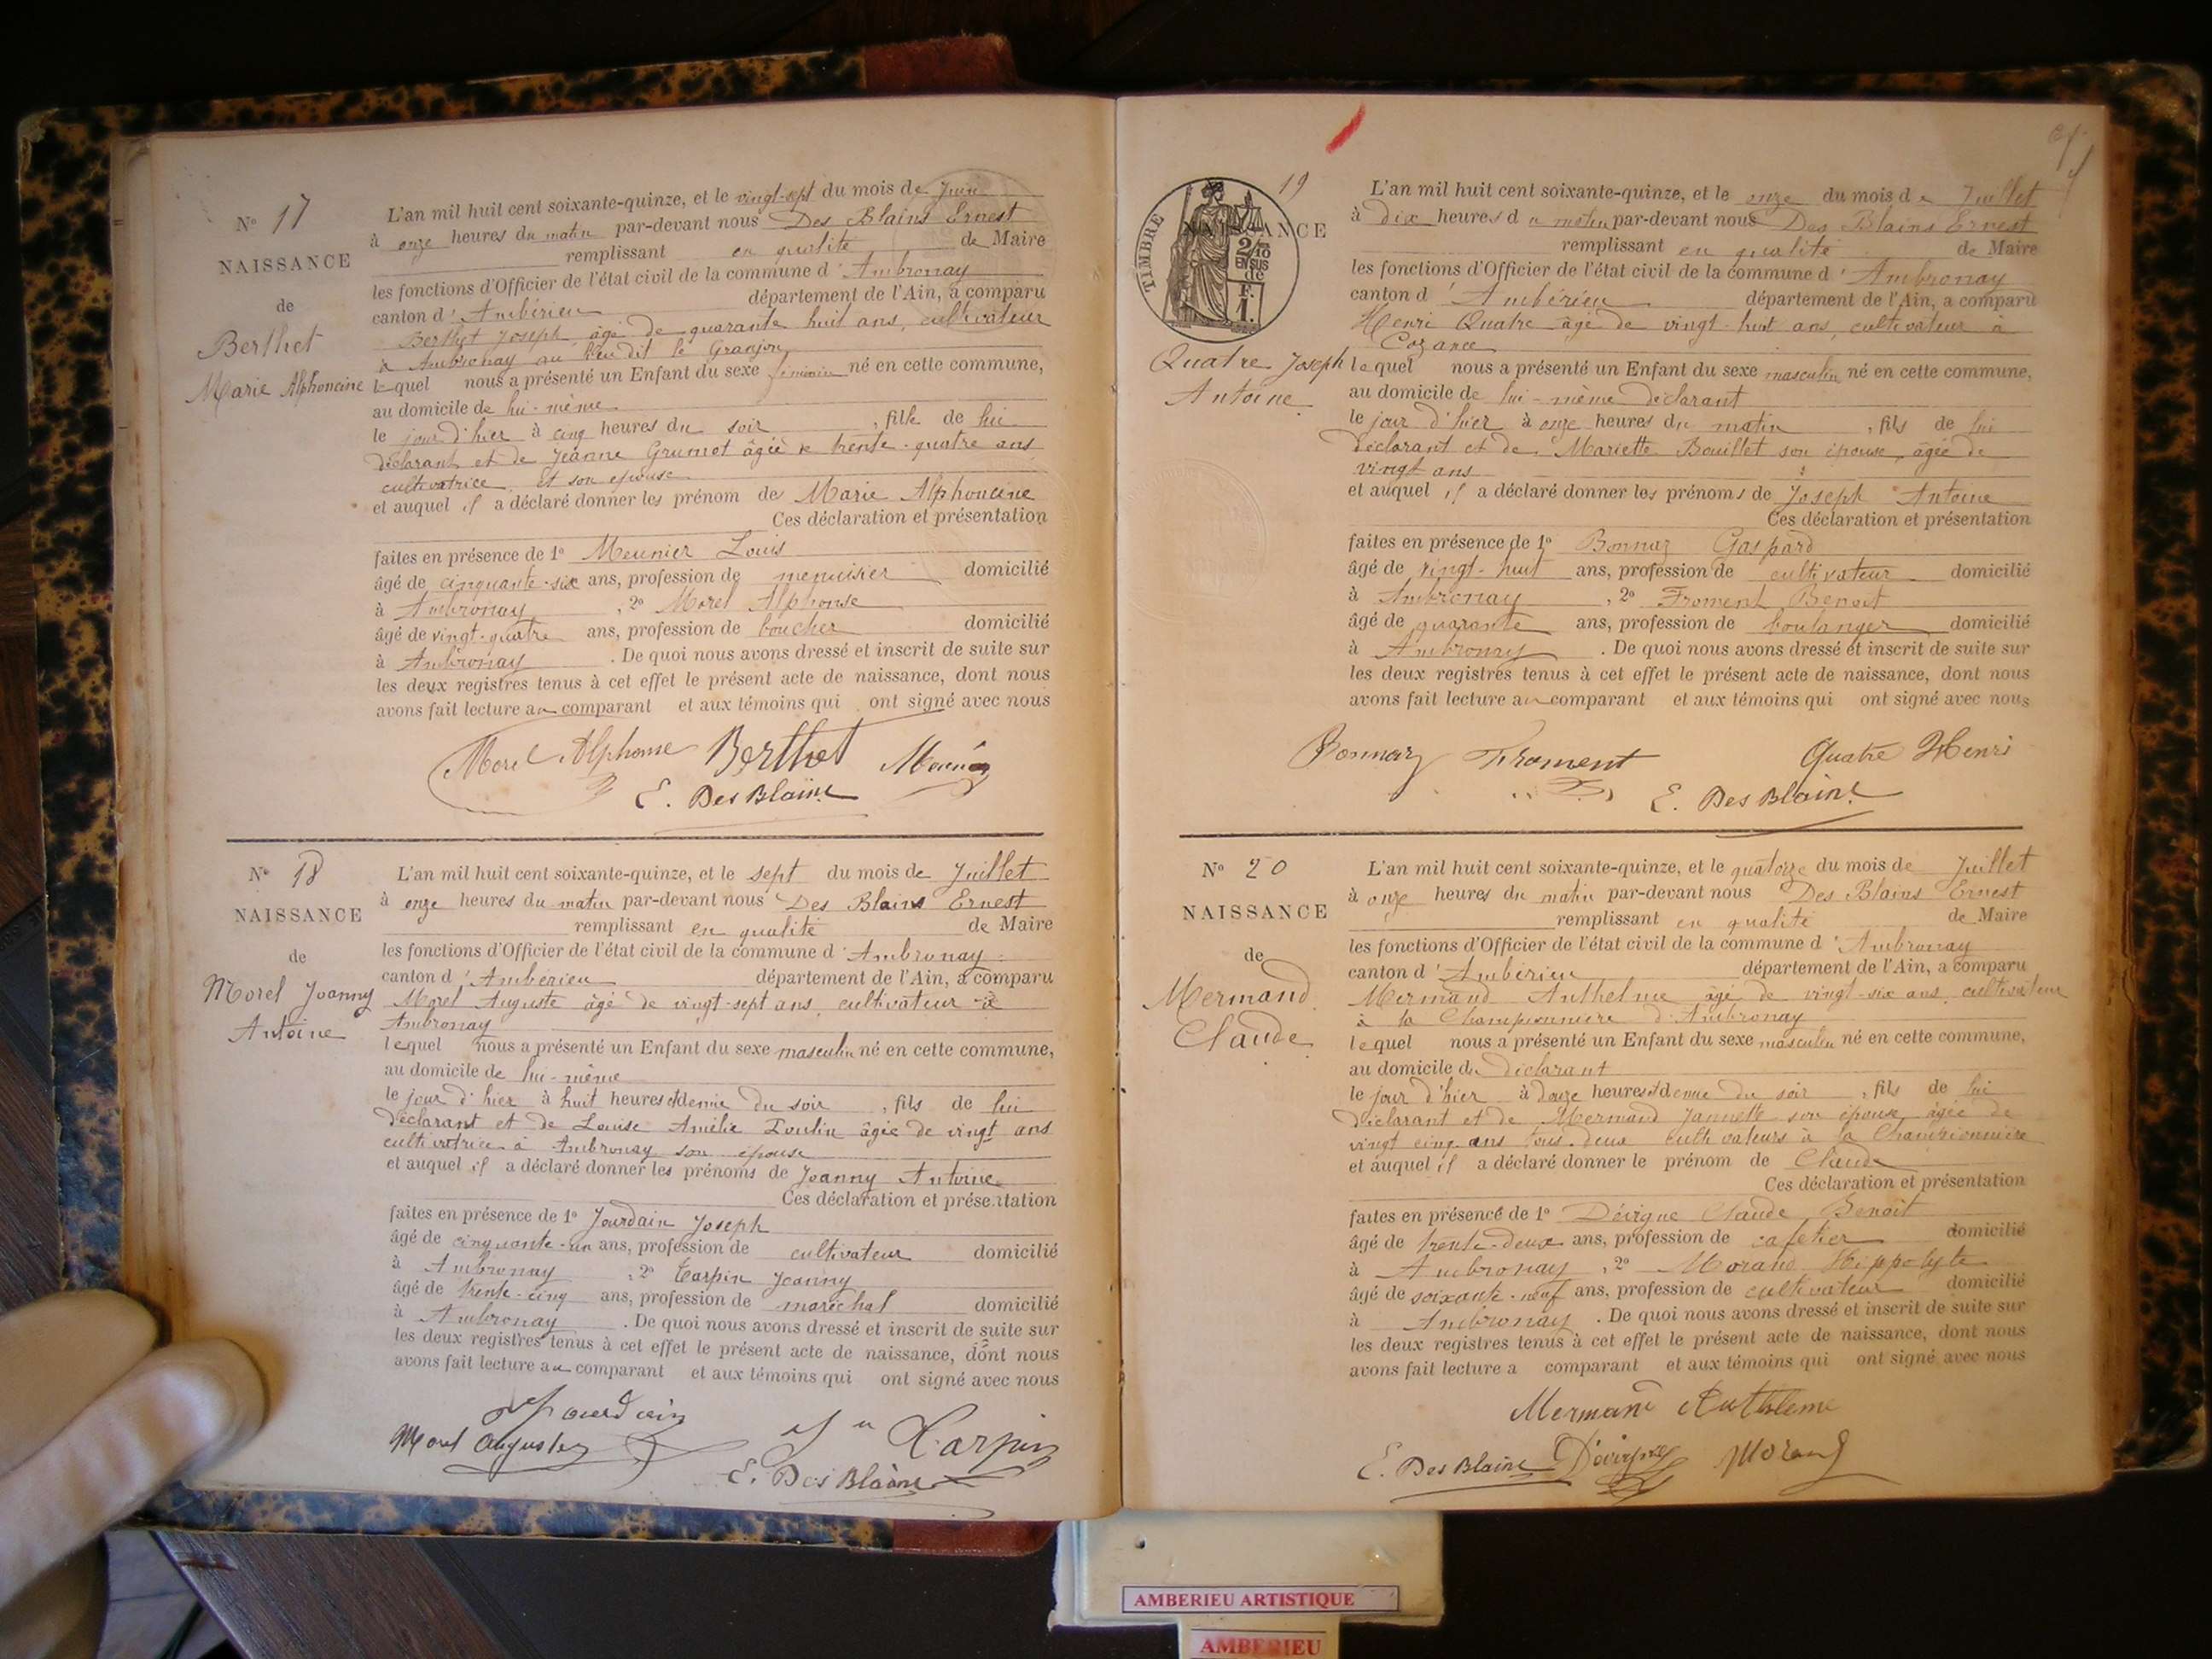 N° 17
NAISSANCE
de
Berthet
Marie Alphoncine
L'an mil huit cent soixante-quinze, et le vingt-sept du mois de Juin
à onze heures du matin par-devant nous Des Blains Ernest
remplissant en qualité de Maire
les fonctions d'Officier de l'état civil de la commune d'Ambronay
canton d'Ambérieu département de l'Ain, a comparu
Berthet Joseph âgé de quarante huit ans, cultivateur
à Ambronay au lieu dit le Granjon
lequel nous a présenté un Enfant du sexe féminin né en cette commune,
au domicile de lui-même
le jour d'hier à cinq heures du soir, fille de lui
déclarant et de Jeanne Grumot âgée de trente-quatre ans
cultivatrice et son épouse
et auquel il a déclaré donner les prénom de Marie Alphoncine
Ces déclaration et présentation
faites en présence de 1° Meunier Louis
âgé de cinquante-six ans, profession de menuisier domicilié
à Ambronay, 2° Morel Alphonse
âgé de vingt-quatre ans, profession de boucher domicilié
à Ambronay. De quoi nous avons dressé et inscrit de suite sur
les deux registres tenus à cet effet le présent acte de naissance, dont nous
avons fait lecture au comparant et aux témoins qui ont signé avec nous
Morel Alphonse Berthet Meunier
E. Des Blains
N° 18
NAISSANCE
de
Morel Joanny
Antoine
L'an mil huit cent soixante-quinze, et le sept du mois de Juillet
à onze heures du matin par-devant nous Des Blains Ernest
remplissant en qualité de Maire
les fonctions d'Officier de l'état civil de la commune d'Ambronay
canton d'Ambérieu département de l'Ain, a comparu
Morel Auguste âgé de vingt-sept ans, cultivateur à
Ambronay
lequel nous a présenté un Enfant du sexe masculin né en cette commune,
au domicile de lui-même
le jour d'hier à huit heures et demie du soir, fils de lui
déclarant et de Louise Amélie âgée de vingt ans
cultivatrice à Ambronay son épouse
et auquel il a déclaré donner les prénoms de Joanny Antoine
Ces déclaration et présentation
faites en présence de 1° Jourdain Joseph
âgé de cinquante-un ans, profession de cultivateur domicilié
à Ambronay, 2° Tarpin Joanny
âgé de trente-cinq ans, profession de maréchal domicilié
à Ambronay. De quoi nous avons dressé et inscrit de suite sur
les deux registres tenus à cet effet le présent acte de naissance, dont nous
avons fait lecture au comparant et aux témoins qui ont signé avec nous
Jourdain
Morel Auguste Tarpin
E. Des Blains
19
NAISSANCE
TIMBRE
2/10
EN SUS
de
F.
1.
Quatre Joseph
Antoine
L'an mil huit cent soixante-quinze, et le onze du mois de Juillet
à dix heures du matin par-devant nous Des Blains Ernest
remplissant en qualité de Maire
les fonctions d'Officier de l'état civil de la commune d'Ambronay
canton d'Ambérieu département de l'Ain, a comparu
Henri Quatre âgé de vingt-huit ans, cultivateur à
Cozance
lequel nous a présenté un Enfant du sexe masculin né en cette commune,
au domicile de lui-même déclarant
le jour d'hier à onze heures du matin, fils de lui
déclarant et de Mariette Bouillet son épouse, âgée de
vingt ans
et auquel il a déclaré donner les prénoms de Joseph Antoine
Ces déclaration et présentation
faites en présence de 1° Bonnaz Gaspard
âgé de vingt-huit ans, profession de cultivateur domicilié
à Ambronay, 2° Froment Benoit
âgé de quarante ans, profession de boulanger domicilié
à Ambronay. De quoi nous avons dressé et inscrit de suite sur
les deux registres tenus à cet effet le présent acte de naissance, dont nous
avons fait lecture au comparant et aux témoins qui ont signé avec nous
Bonnaz Froment Quatre Henri
E. Des Blains
N° 20
NAISSANCE
de
Mermand
Claude
L'an mil huit cent soixante-quinze, et le quatorze du mois de Juillet
à onze heures du matin par-devant nous Des Blains Ernest
remplissant en qualité de Maire
les fonctions d'Officier de l'état civil de la commune d'Ambronay
canton d'Ambérieu département de l'Ain, a comparu
Mermand Anthelme âgé de vingt-six ans, cultivateur
à la Championnière d'Ambronay
lequel nous a présenté un Enfant du sexe masculin né en cette commune,
au domicile du déclarant
le jour d'hier à douze heures et demie du soir, fils de lui
déclarant et de Mermand Jannette son épouse âgée de
vingt cinq ans tous deux cultivateurs à la Championnière
et auquel il a déclaré donner le prénom de Claude
Ces déclaration et présentation
faites en présence de 1° Dévigne Claude Benoit
âgé de trente-deux ans, profession de cafetier domicilié
à Ambronay, 2° Morand Hippolyte
âgé de soixante-neuf ans, profession de cultivateur domicilié
à Ambronay. De quoi nous avons dressé et inscrit de suite sur
les deux registres tenus à cet effet le présent acte de naissance, dont nous
avons fait lecture a comparant et aux témoins qui ont signé avec nous
Mermand Anthleme
E. Des Blains Dévigne Morand
AMBERIEU ARTISTIQUE
AMBERIEU